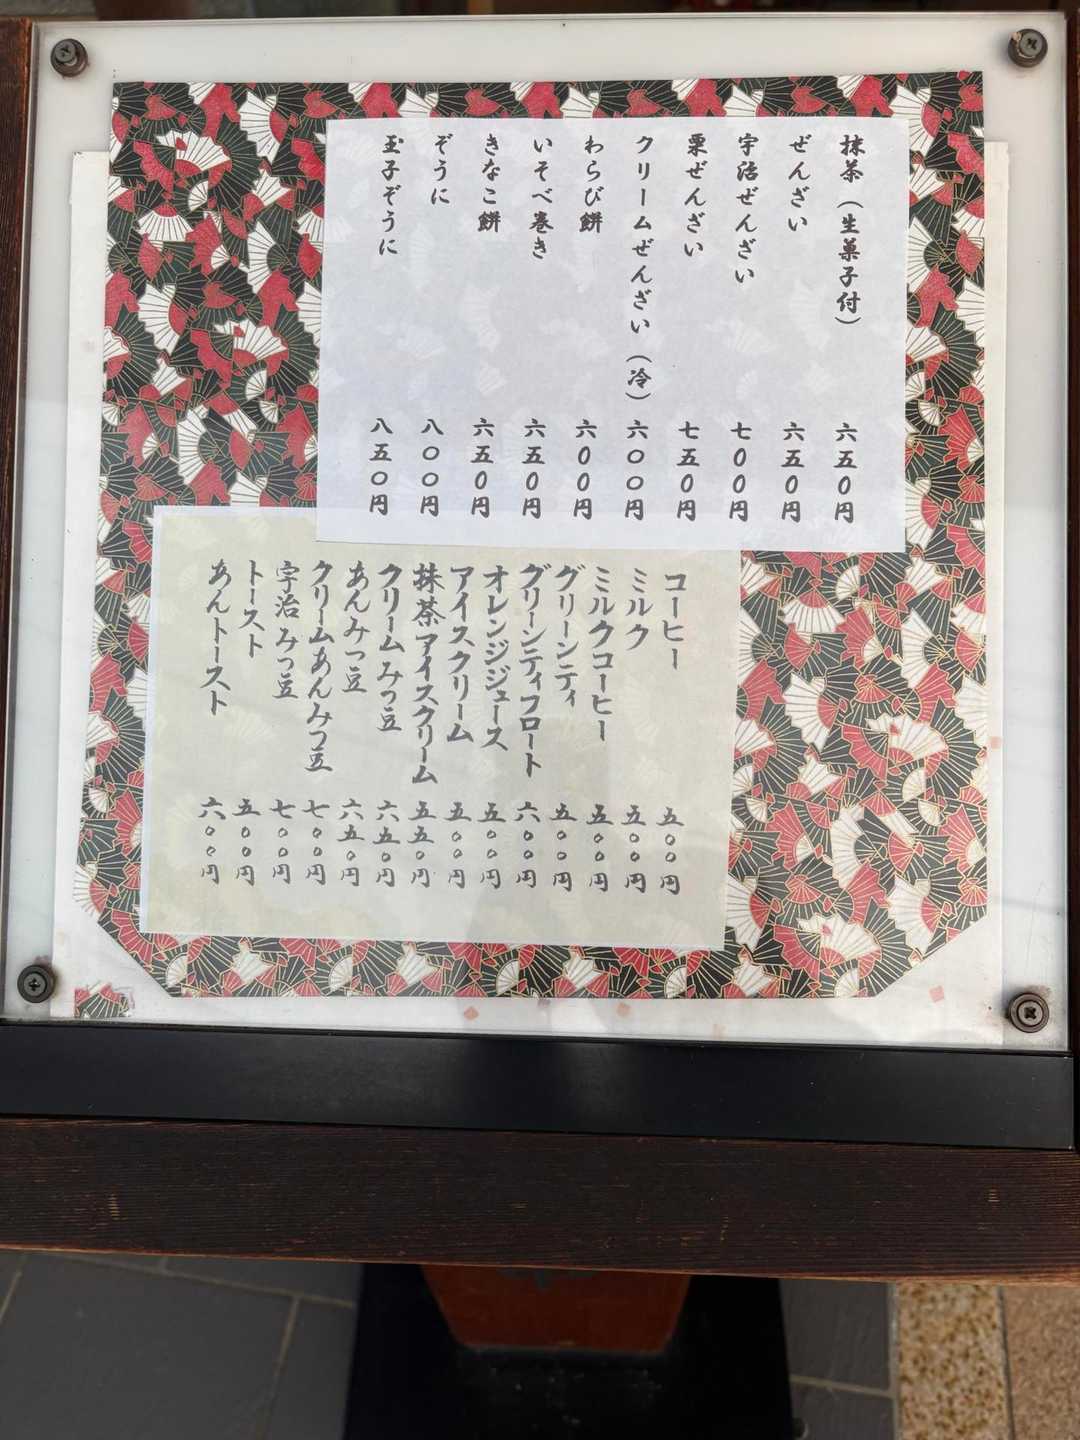 抹茶（生菓子付） 六五〇円
ぜんざい 六五〇円
宇治ぜんざい 七〇〇円
栗ぜんざい 七五〇円
クリームぜんざい（冷） 六〇〇円
わらび餅 六〇〇円
いそべ巻き 六五〇円
きなこ餅 六五〇円
ぞうに 八〇〇円
玉子ぞうに 八五〇円
コーヒー 五〇〇円
ミルク 五〇〇円
ミルクコーヒー 五〇〇円
グリーンティ 五〇〇円
グリーンティフロート 六〇〇円
オレンジジュース 五〇〇円
アイスクリーム 五〇〇円
抹茶アイスクリーム 五五〇円
クリームみつ豆 六五〇円
あんみつ豆 六五〇円
クリームあんみつ豆 七〇〇円
宇治みつ豆 七〇〇円
トースト 五〇〇円
あんトースト 六〇〇円